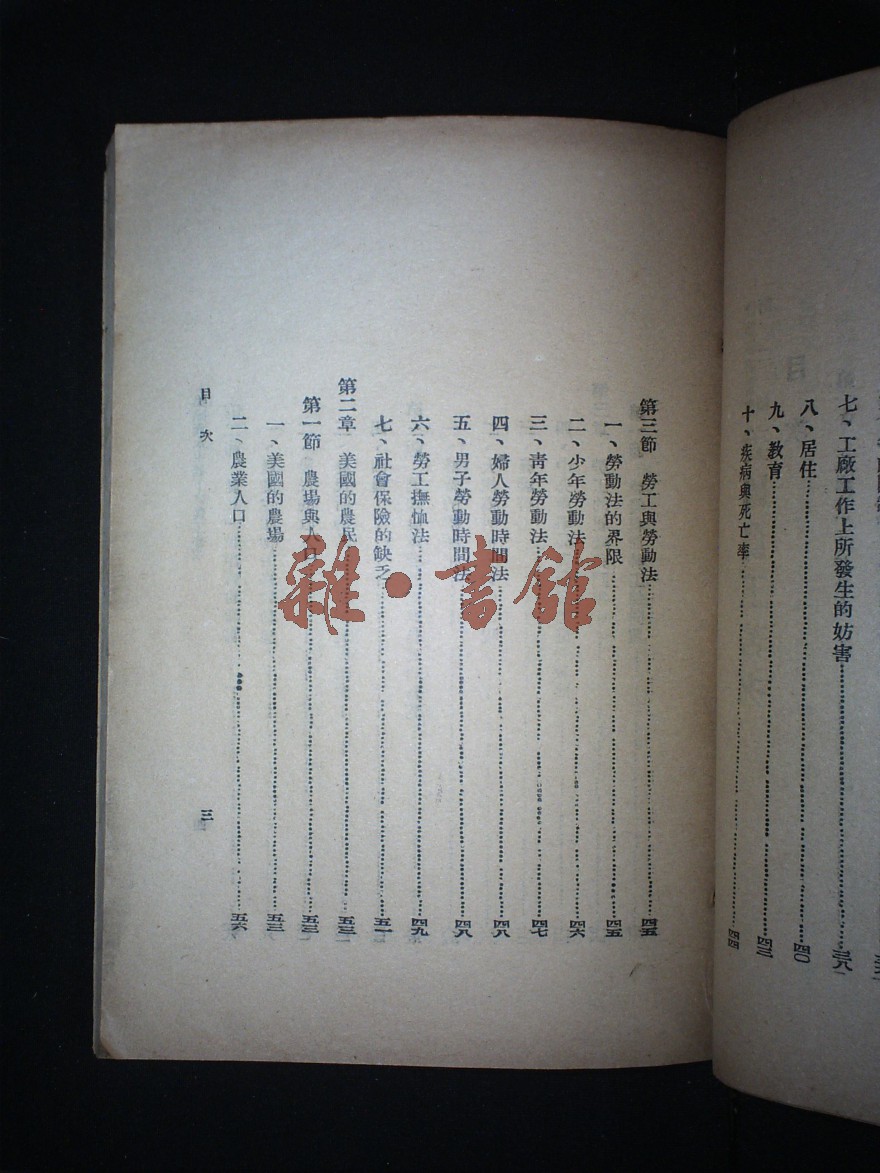 七、工廠工作上所發生的妨害……三八
八、居住……四〇
九、教育……四三
十、疾病與死亡率……四四
第三節 勞工與勞動法……四五
一、勞動法的界限……四五
二、少年勞動法……四六
三、青年勞動法……四七
四、婦人勞動時間法……四八
五、男子勞動時間法……四八
六、勞工撫恤法……四九
七、社會保險的缺乏……五一
第二章 美國的農民……五三
第一節 農場與人口……五三
一、美國的農場……五三
二、農業人口……五六
目次
三
雜·書館